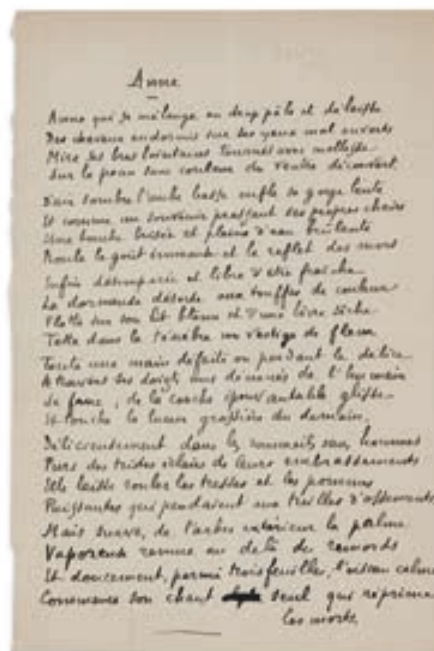 Anne
Anne qui se mélange au drap pâle et délaisse
Des cheveux endormis sur ses yeux mal ouverts
Mire ses bras lointains tournés avec mollesse
Sur la peau sans couleur du ventre découvert.
D'une sombre l'ombre basse enfle sa gorge lente
Et comme un souvenir pressant ses propres chairs
Une bouche brisée et pleine d'eau brûlante
Roule le goût immense et le reflet des mers
Enfin désemparée et libre d'être fraîche
La dormeuse déserte aux touffes de couleur
Flotte sur son lit blême et d'une lèvre sèche
Tette dans la ténèbre un vestige de fleur
Toute une main défaite où perdant le délice
A travers ses doigts nus dénoués de l'humain
Se fane, de la couche épouvantable glisse
Et touche la lueur grossière du demain.
Délicieusement dans les sommeils sans hommes
Purs des tristes éclairs de leurs embrassements
Elle laisse rouler les tresses et les pommes
Puissantes qui pendaient aux treilles d'ossements
Mais suave, de l'arbre extérieur la palme
Vaporeuse remue au delà du remords
Et doucement, parmi trois feuilles, l'oiseau calme
Commence son chant seul qui réprime
les morts.